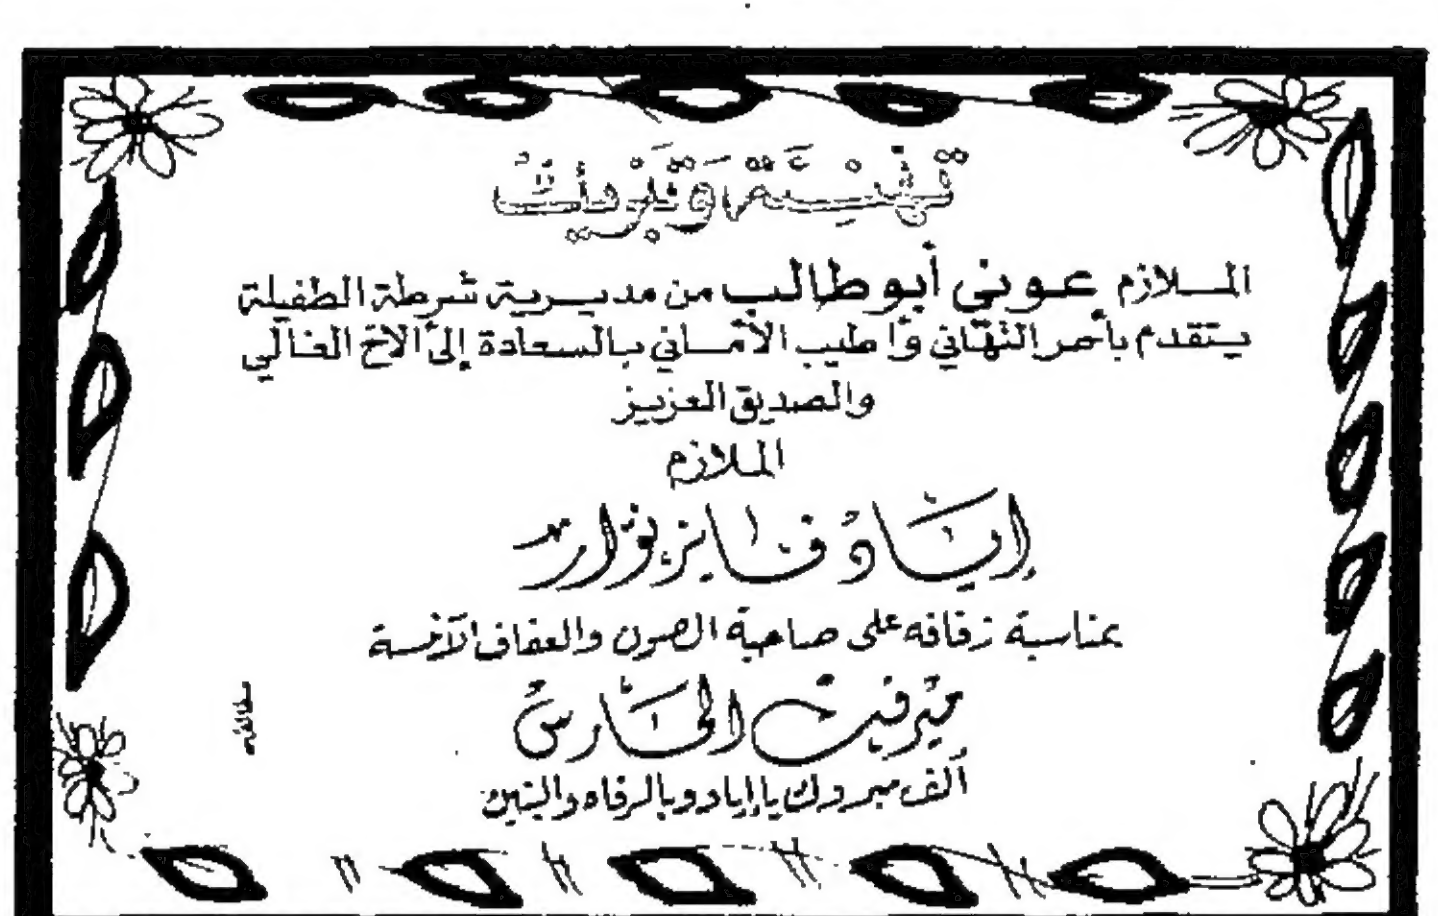 تهنئة وتبريك
الملازم عوني أبو طالب من مديرية شرطة الطفيلة
يتقدم بأحر التهاني وأطيب الأماني بالسعادة إلى الأخ الغالي
والصديق العزيز
الملازم
إياد فايز نوار
بمناسبة زفافه على صاحبة الصون والعفاف الآنسة
ميرفيت الحارس
ألف مبروك يا إياد وبالرفاه والبنين